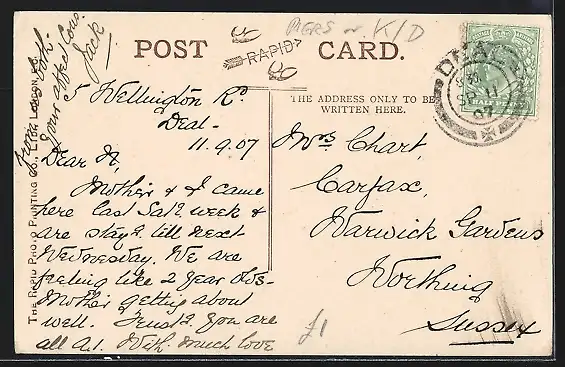 PIERS or K/D
POST CARD.
RAPID
THE ADDRESS ONLY TO BE
WRITTEN HERE.
DEAL
SP 11
07
5 Wellington Rd
Deal.
11.9.07
Dear A,
Mother & I came
here last Satd week &
are stayg till next
Wednesday. We are
feeling like 2 year olds.
Mother getting about
well. Trustg you are
all A.1. With much love
from us both.
Your affect Cous
Jack
Mrs Chart,
Carfax,
Warwick Gardens
Worthing
Sussex
£1
THE RAPID PHOTO PRINTING CO., LTD., LONDON, E.C.